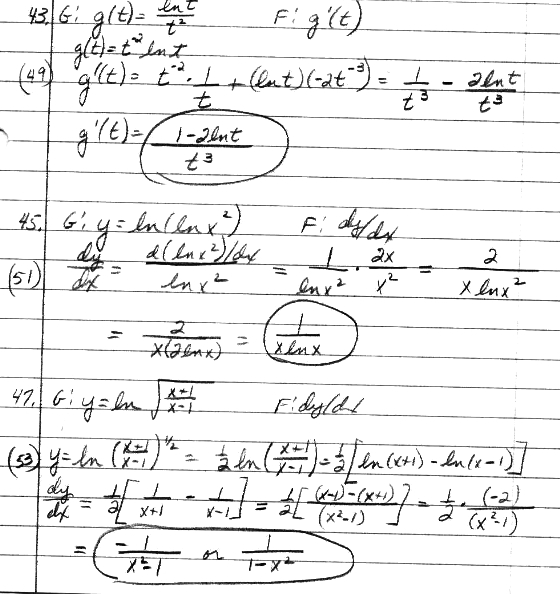 43. G: g(t) = ln t / t² F: g'(t)
g(t) = t⁻² ln t
(49) g'(t) = t⁻² · 1/t + (ln t)(-2t⁻³) = 1/t³ - 2 ln t/t³
g'(t) = (1 - 2 ln t)/t³
45. G: y = ln(ln x²) F: dy/dx
(51) dy/dx = d(ln x²)/dx / ln x² = 1/ln x² · 2x/x² = 2/(x ln x²)
= 2/(x(2 ln x)) = 1/(x ln x)
47. G: y = ln √((x+1)/(x-1)) F: dy/dx
(53) y = ln ((x+1)/(x-1))^(1/2) = ½ ln ((x+1)/(x-1)) = ½[ln(x+1) - ln(x-1)]
dy/dx = ½[1/(x+1) - 1/(x-1)] = ½[((x-1)-(x+1))/(x²-1)] = ½ · (-2)/(x²-1)
= -1/(x²-1) or 1/(1-x²)